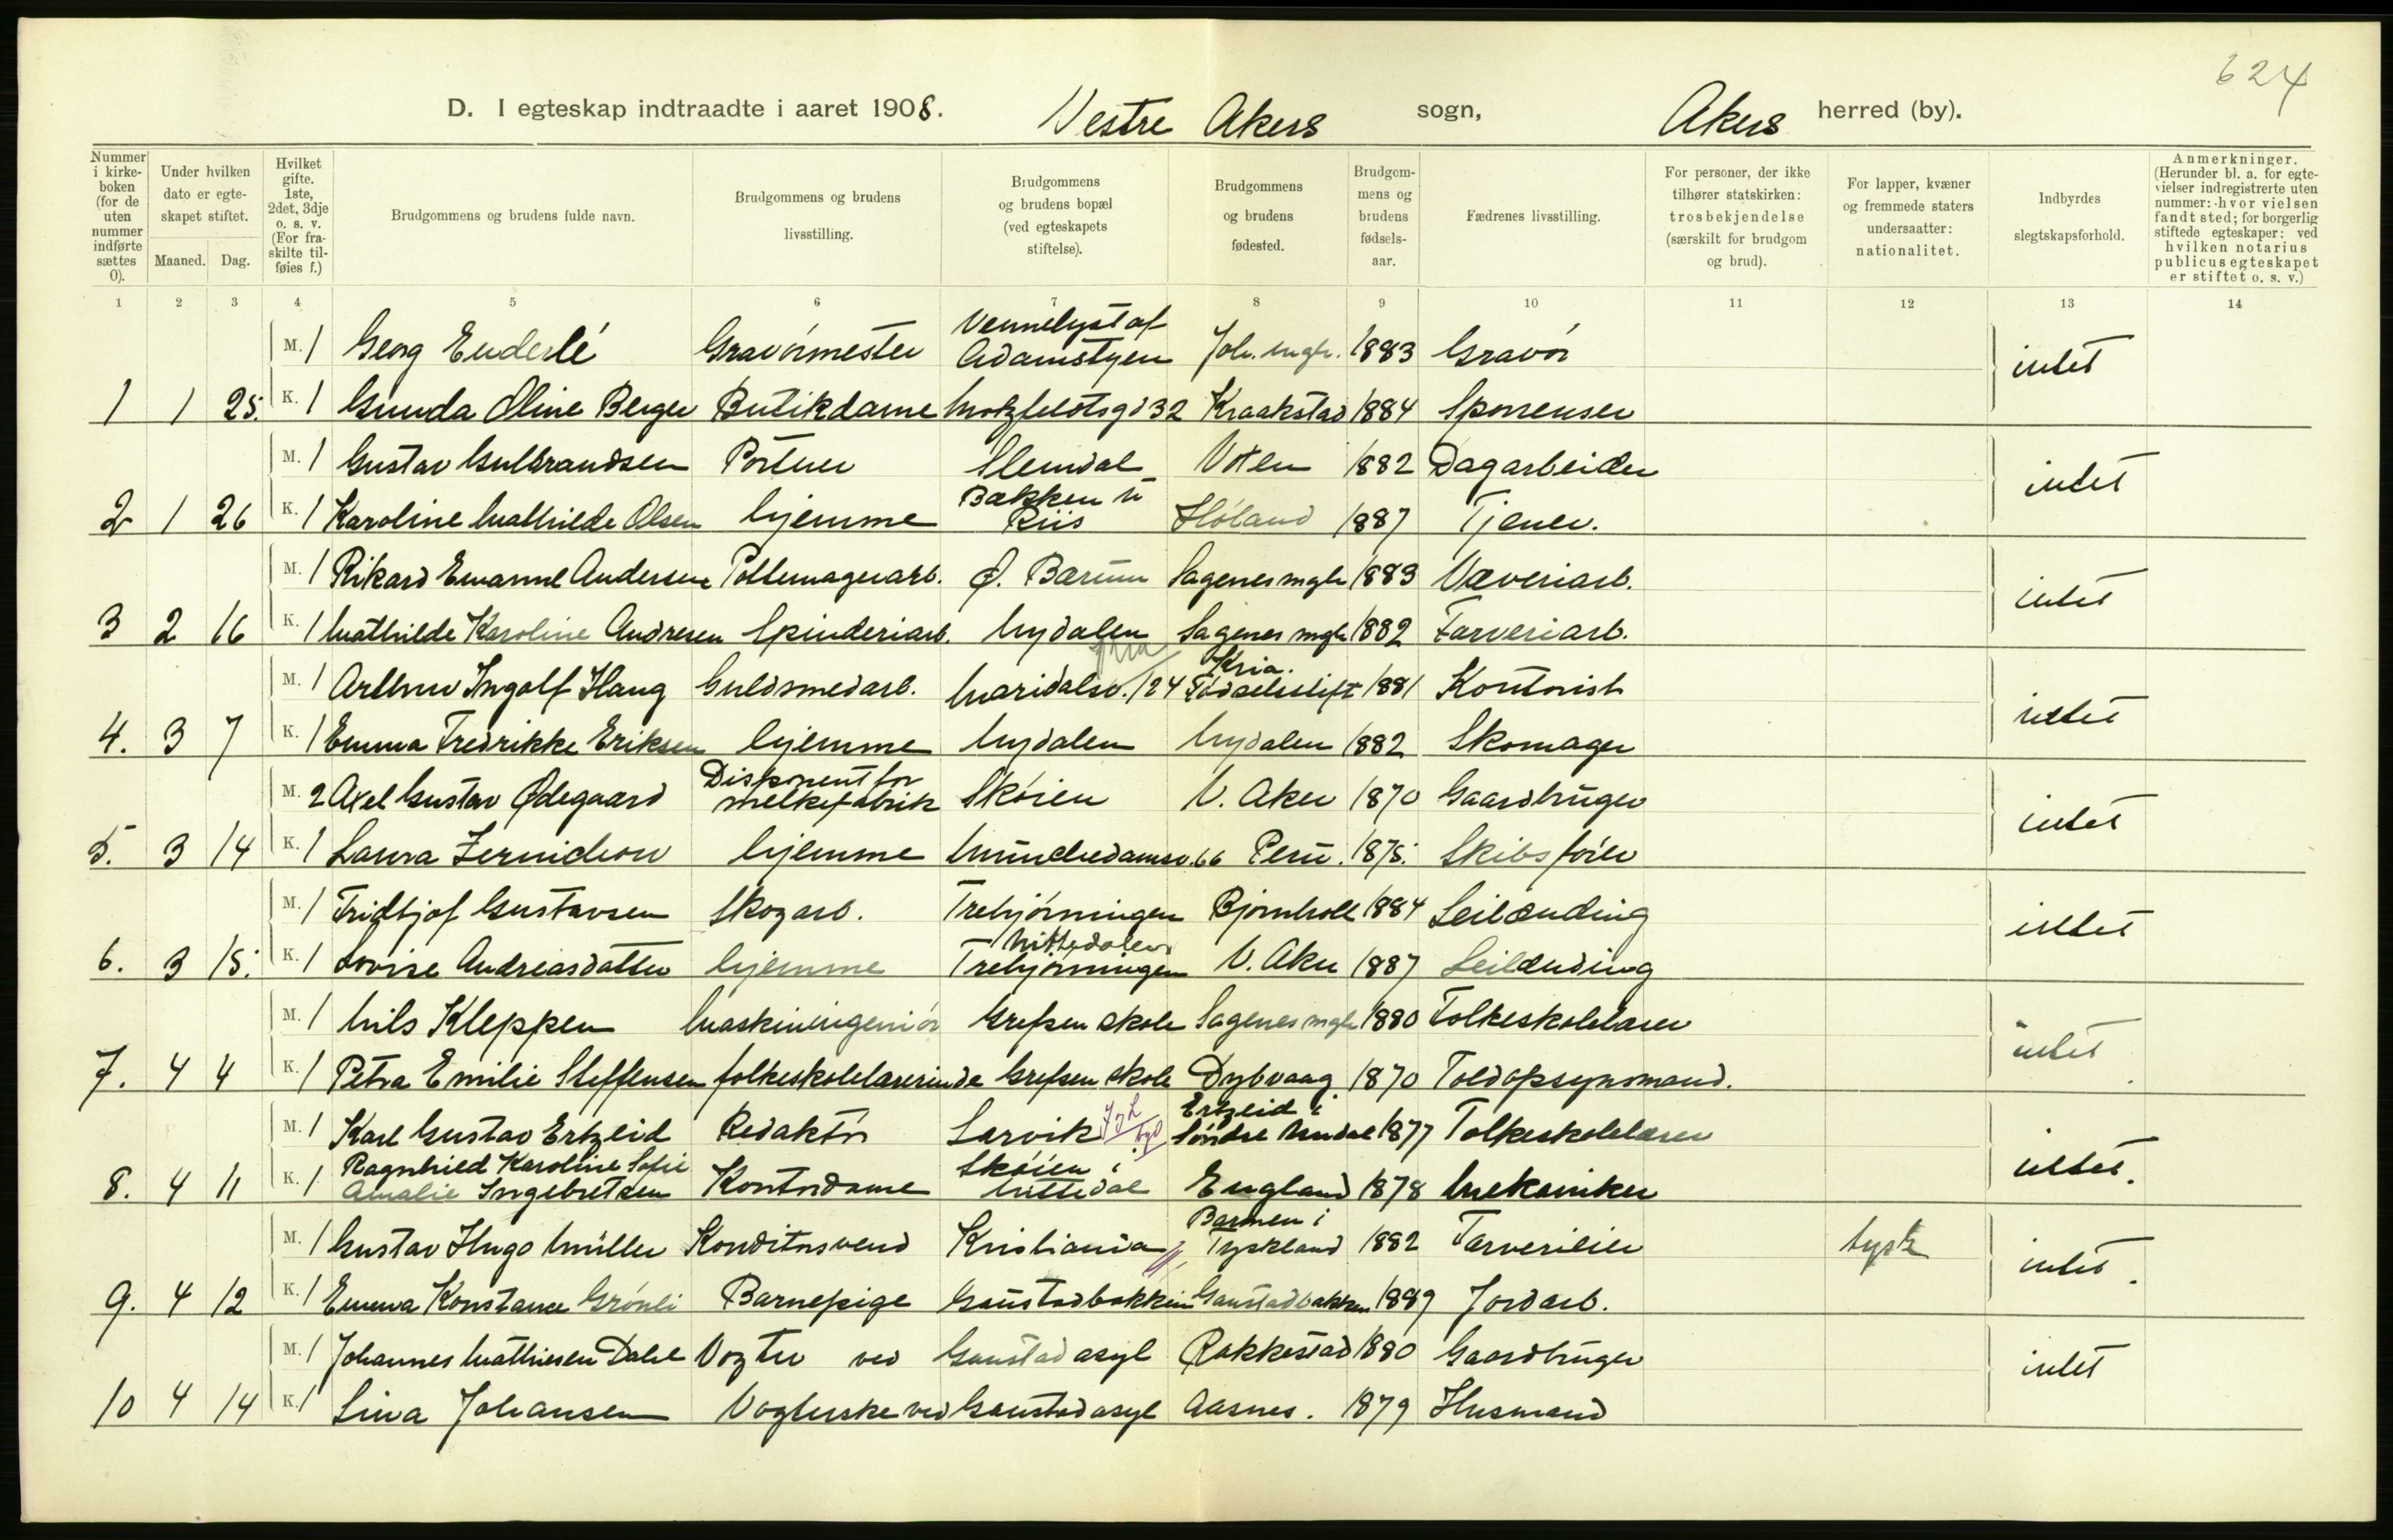 624
D. I egteskap indtraadte i aaret 1908. Vestre Akers sogn, Akers herred (by).
Nummer i kirke-boken (for de uten nummer indførte sættes 0).
Under hvilken dato er egte-skapet stiftet. Maaned. Dag.
Hvilket gifte. 1ste, 2det, 3dje o. s. v. (For fra-skilte til-føies f.)
Brudgommens og brudens fulde navn.
Brudgommens og brudens livsstilling.
Brudgommens og brudens bopæl (ved egteskapets stiftelse).
Brudgommens og brudens fødested.
Brudgom-mens og brudens fødsels-aar.
Fædrenes livsstilling.
For personer, der ikke tilhører statskirken: trosbekjendelse (særskilt for brudgom og brud).
For lapper, kvæner og fremmede staters undersaatter: nationalitet.
Indbyrdes slegtskapsforhold.
Anmerkninger. (Herunder bl. a. for egte-vielser indregistrerte uten nummer: hvor vielsen fandt sted; for borgerlig stiftede egteskaper: ved hvilken notarius publicus egteskapet er stiftet o. s. v.)
1 2 3 4 5 6 7 8 9 10 11 12 13 14
M. 1 Georg Enderlé Gravörmester Vennelyst af Adamstuen Joh. mgh. 1883 Gravör intet
1 1 25. K. 1 Gunda Oline Berger Butikdame Motzfeldtsgd 32 Kraakstad 1884 Sporenser
M. 1 Gustav Gulbrandsen Portner Slemdal Volen 1882 Dagarbeider intet
2 1 26 K. 1 Karoline Mathilde Olsen hjemme Bakken v Riis Høland 1887 Tjener.
M. 1 Rikard Emanuel Andersen Pottemagerarb. Ø. Bærum Sagenes mgh 1883 Væveriarb. intet
3 2 16 K. 1 Mathilde Karoline Andresen Spinderiarb. Nydalen Sagenes mgh 1882 Farveriarb.
M. 1 Arthur Ingolf Haug Guldsmedarb. Maridalsv. 124 Kria Kria. Fødselsstift 1881 Kontorist intet
4. 3 7 K. 1 Emma Fredrikke Eriksen hjemme Nydalen Nydalen 1882 Skomager
M. 2 Axel Gustav Ødegaard Disponent for melkefabrik Skøien V. Aker 1870 Gaardbruger intet
5. 3 14 K. 1 Laura hjemme Munchedamsv. 66 Peru. 1875. Skibsfører
M. 1 Fridtjof Gustavsen Skogarb. Trehjørningen Bjørnholt 1884 Leilænding intet
6. 3 15. K. 1 Lovise Andreasdatter hjemme Nittedalen Trehjørningen V. Aker 1887 Leilænding
M. 1 Nils Kleppen Maskiningeniör Grefsen skole Sagenes mgh 1880 Folkeskolelærer intet
7. 4 4 K. 1 Petra Emilie Steffensen folkeskolelærerinde Grefsen skole Dybvaag 1870 Toldopsynsmand.
M. 1 Karl Gustav Ertzeid Redaktör Larvik Ertzeid i Søndre Undal 1877 Folkeskolelærer intet.
8. 4 11 K. 1 Ragnhild Karoline Sofie Amalie Ingebretsen Kontordame Skøien i Nittedal England 1878 Mekaniker
M. 1 Gustav Hugo Müller Konditorsvend Kristiania Barmen i Tyskland 1882 Farverieier tysk intet.
9. 4 12 K. 1 Emma Konstance Grönli Barnepige Gaustadbakken Gaustadbakken 1889 Jordarb.
M. 1 Johannes Mathiesen Dahl Vogter ved Gaustad asyl Rakkestad 1880 Gaardbruger intet
10 4 14 K. 1 Lina Johansen Vogterske ved Gaustad asyl Aasnes. 1879 Husmand